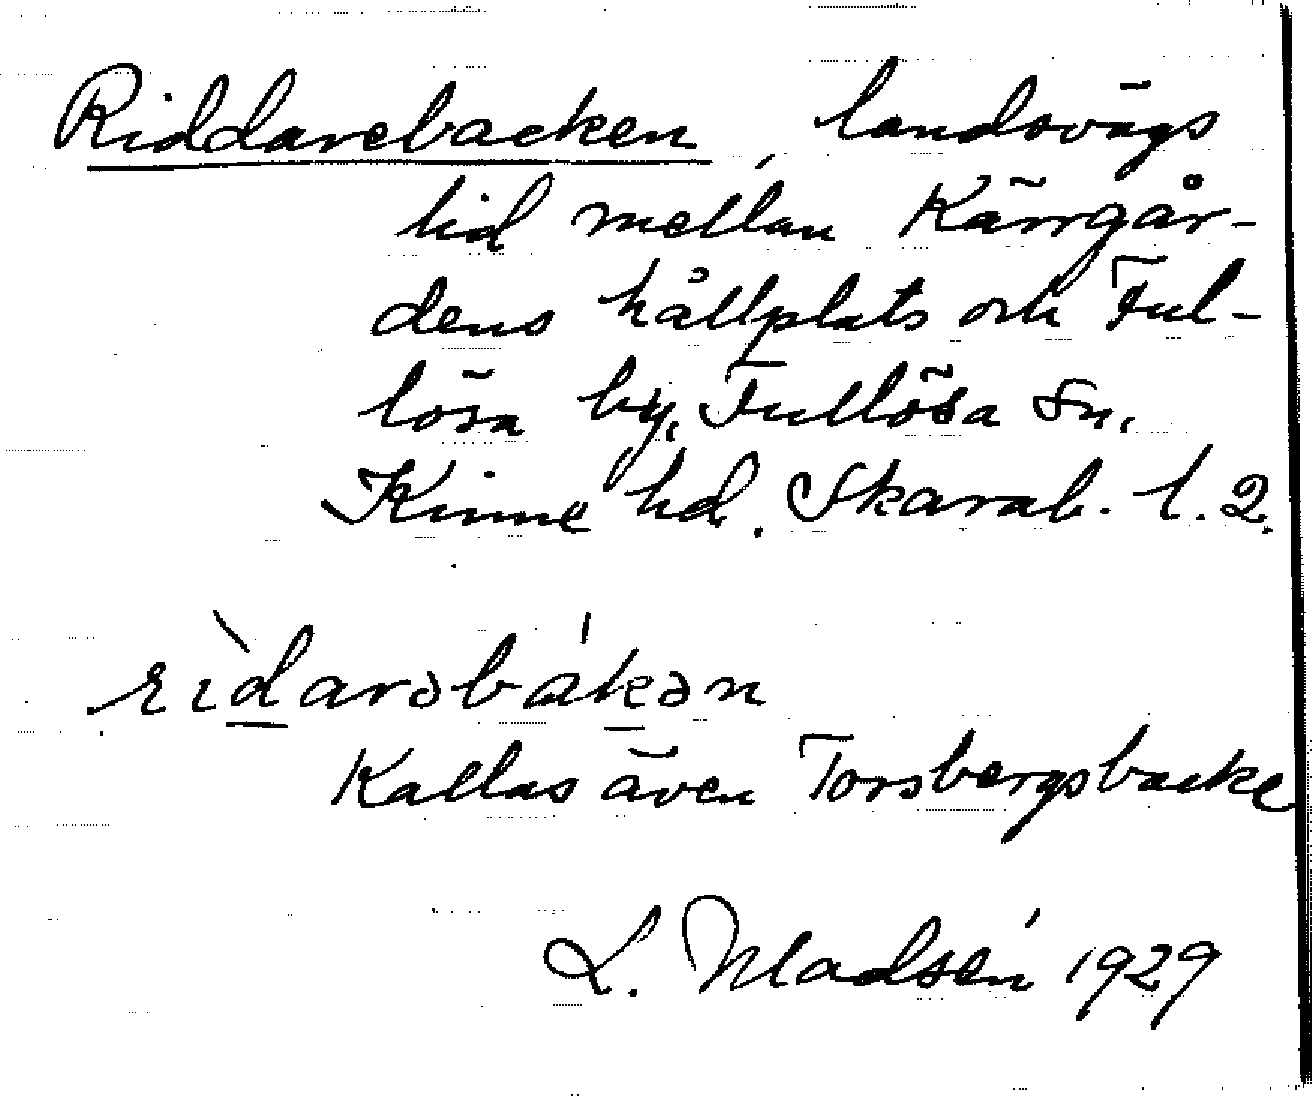 Riddarebacken, landsvägs
lid mellan Kärrgår-
dens hållplats och Ful-
lösa by, Fullösa sn,
Kinne hd. Skarab. l. 2.
rìdarəbákən
Kallas även Torsbergsbacke
L. Madsén 1929